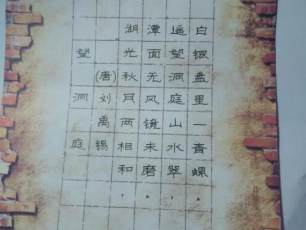 望洞庭
(唐)刘禹锡
湖光秋月两相和，
潭面无风镜未磨。
遥望洞庭山水翠，
白银盘里一青螺。